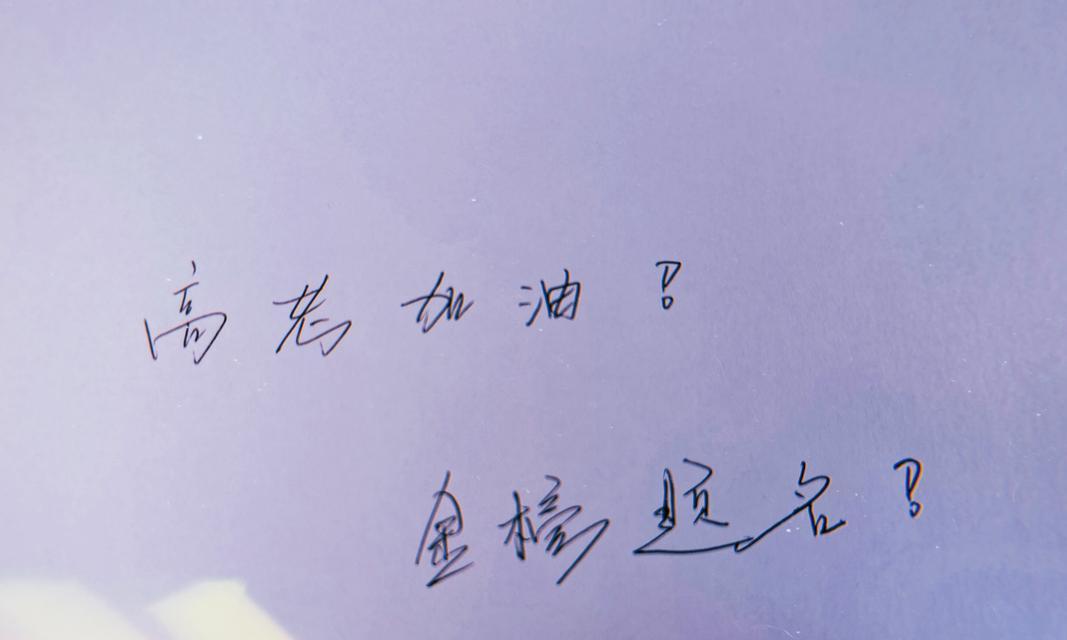 高考加油！
金榜题名！